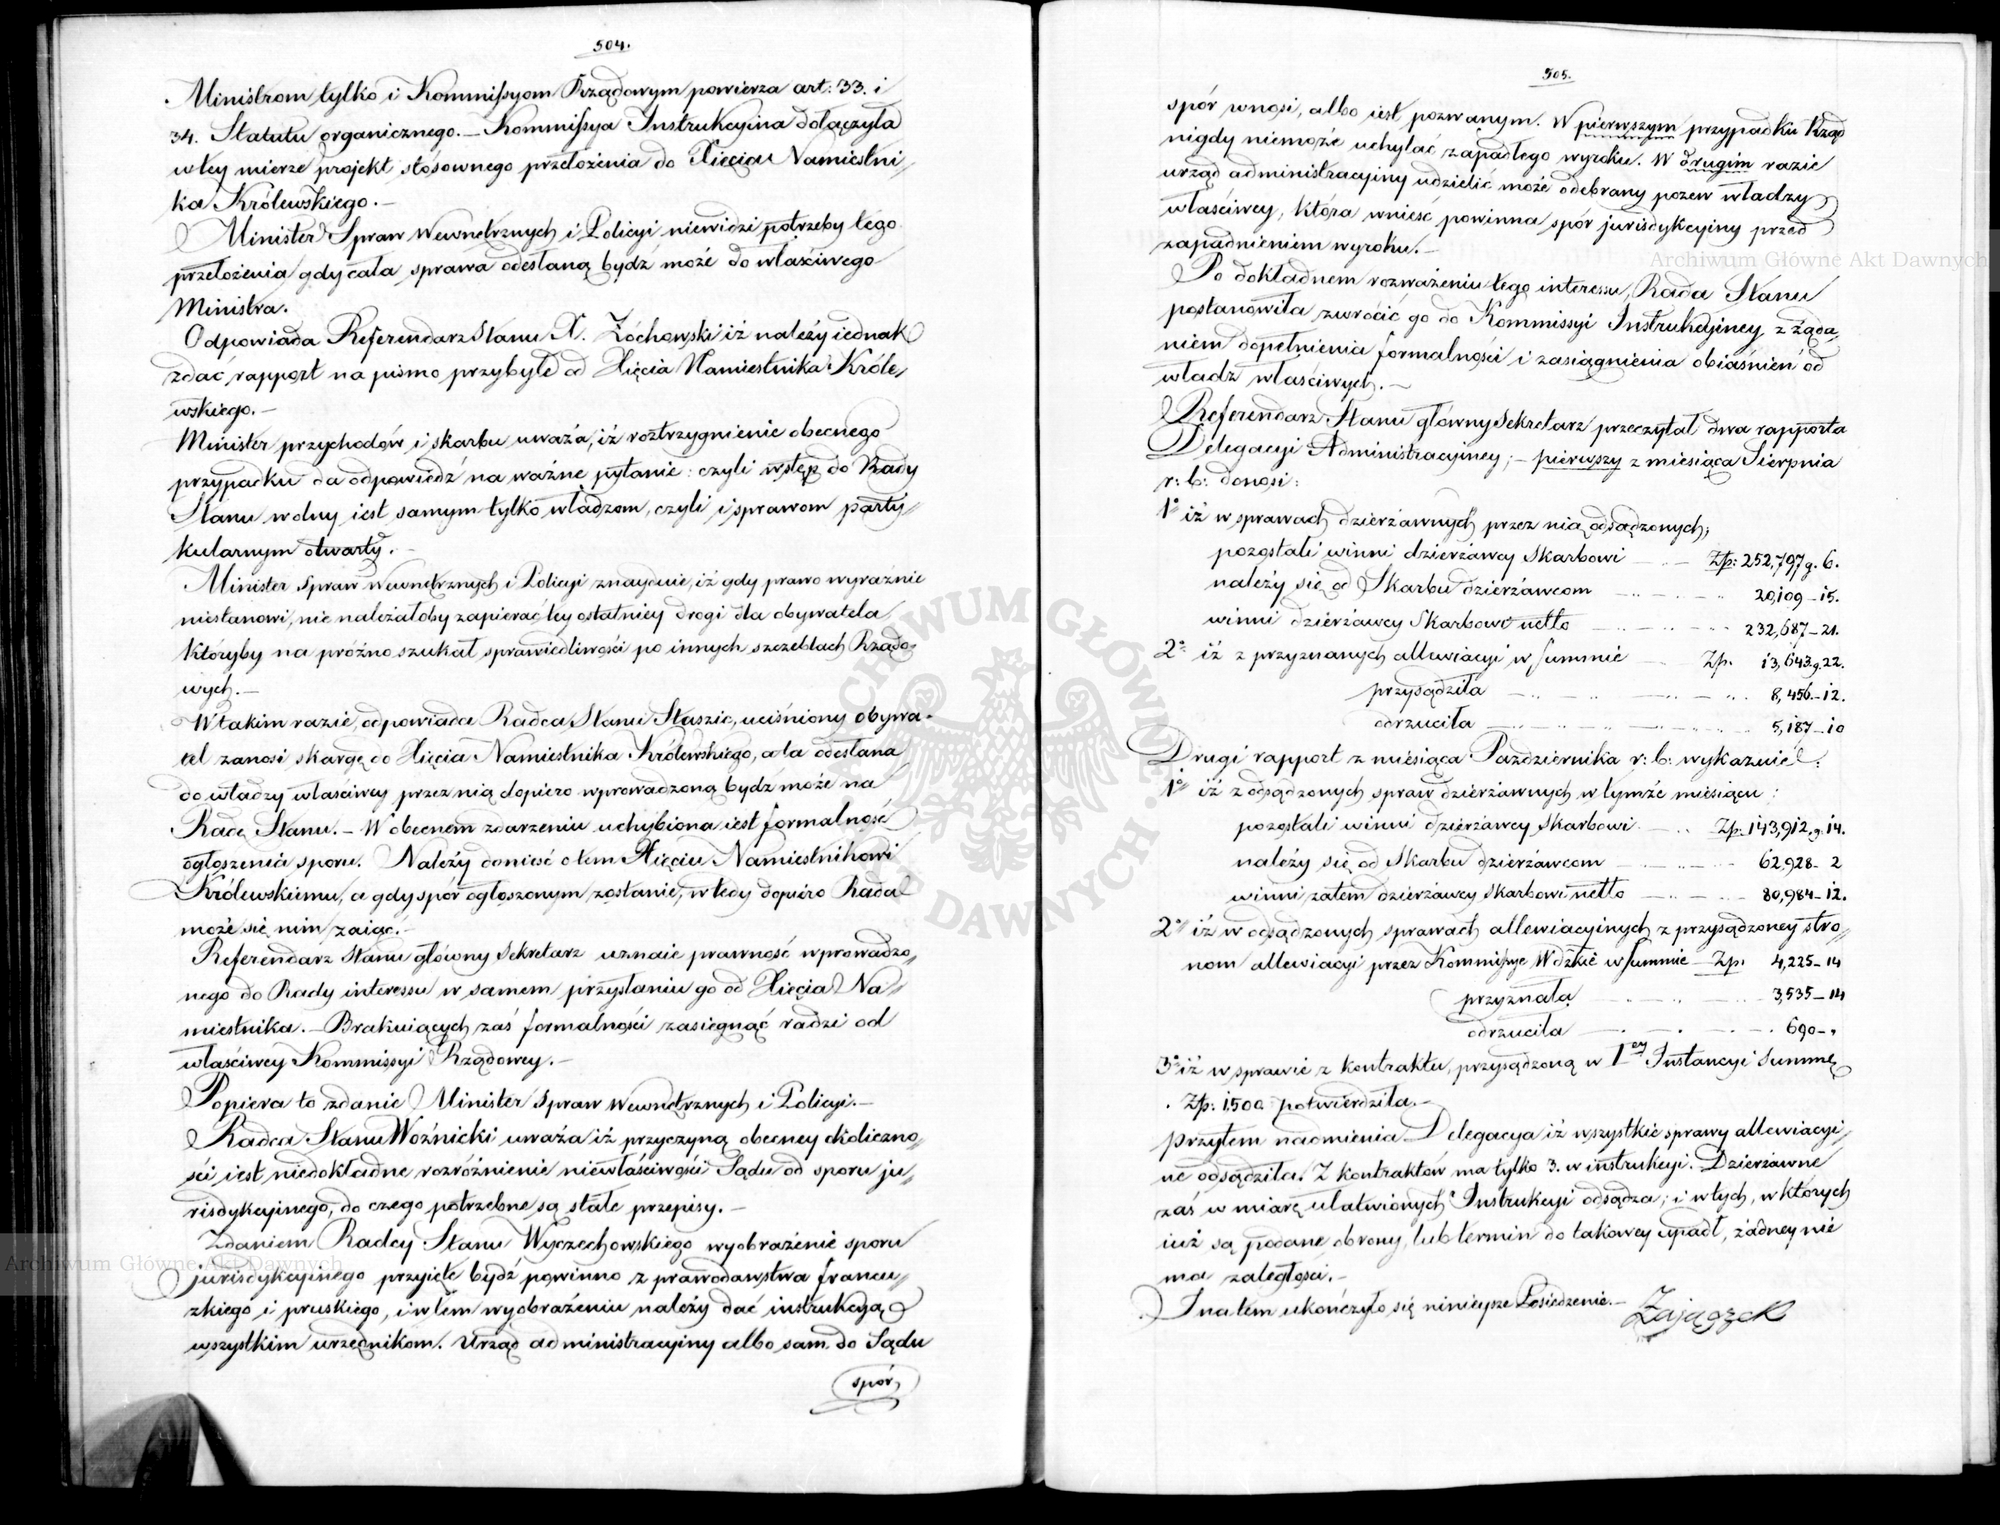 504.
Ministrom tylko i Kommissyom Rządowym powierza art: 33. i
34. Statutu organicznego. — Kommissya Instrukcyina dołączyła
w tey mierze projekt stosownego przełożenia do Xięcia Namiestni„
ka Królewskiego. —
Minister Spraw Wewnętrznych i Policyi niewidzi potrzeby tego
przełożenia gdy cała sprawa odesłaną bydz może do właściwego
Ministra.
Odpowiada Referendarz Stanu X. Żochowski iż należy iednak
zdać rapport na pismo przybyłe od Xięcia Namiestnika Króle„
wskiego. —
Minister przychodów i skarbu uważa, iż roztrzygnienie obecnego
przypadku da odpowiedź na ważne pytanie: czyli wstęp do Rady
Stanu wolny iest samym tylko władzom, czyli i sprawom party„
kularnym otwarty. —
Minister Spraw Wewnętrznych i Policyi znayduie, iż gdy prawo wyraźnie
niestanowi, nie należałoby zapierać tey ostatniey drogi dla obywatela
któryby na próżno szukał sprawiedliwości po innych szczeblach Rządo„
wych. —
W takim razie, odpowiada Radca Stanu Staszic, uciśniony obywa„
tel zanosi skargę do Xięcia Namiestnika Królewskiego, a ta odesłana
do władzy właściwey przez nią dopiero wprowadzoną bydź może na
Radę Stanu. — W obecnem zdarzeniu uchybiona iest formalność
ogłoszenia sporu. Należy donieść o tem Xięciu Namiestnikowi
Królewskiemu, a gdy spór ogłoszonym zostanie, wtedy dopiero Rada
może się nim zaiąć. —
Referendarz Stanu główny Sekretarz uznaie prawność wprowadzo„
nego do Rady interessu w samem przysłaniu go od Xięcia Na„
miestnika. — Brakuiących zaś formalności zasięgnąć radzi od
właściwey Kommissyi Rządowey. —
Popiera to zdanie Minister Spraw Wewnętrznych i Policyi. —
Radca Stanu Woźnicki uważa iż przyczyną obecney okoliczno„
ści iest niedokładne rozróżnienie niewłaściwości Sądu od sporu ju„
risdykcyinego, do czego potrzebne są stałe przepisy. —
Zdaniem Radcy Stanu Wyczechowskiego wyobrażenie sporu
jurisdykcyinego przyięte bydź powinno z prawodawstwa francu„
zkiego i pruskiego, i w tem wyobrażeniu należy dać instrukcyą
wszystkim urzędnikom. Urząd administracyiny albo sam do Sądu
spór,
505.
spór wnosi, albo iest pozwanym. W pierwszym przypadku Rząd
nigdy niemoże uchylać zapadłego wyroku. W drugim razie
urząd administracyiny udzielić może odebrany pozew władzy
właściwey, która wnieść powinna spór jurisdykcyiny przed
zapadnieniem wyroku. —
Po dokładnem rozważeniu tego interessu, Rada Stanu
postanowiła zwrócić go do Kommissyi Instrukcyiney z żąda„
niem dopełnienia formalności i zasiągnienia obiaśnień od
władz właściwych. —
Referendarz Stanu główny Sekretarz przeczytał dwa rapporta
Delegacyi Administracyiney; — pierwszy z miesiąca Sierpnia
r: b: donosi:
1º iż w sprawach dzierżawnych przez nią osądzonych,
pozostali winni dzierżawcy Skarbowi — Zp: 252,797 g. 6.
należy się od Skarbu dzierżawcom — 20,109 — 15.
winni dzierżawcy Skarbowi netto — 232,687 — 21.
2º iż z przyznanych allewiacyi w summie — Zp. 13,643 g. 22.
przysądziła — 8,456 — 12.
odrzuciła — 5,187 — 10
Drugi rapport z miesiąca Października r: b: wykazuie:
1º iż z osądzonych spraw dzierżawnych w tymże miesiącu:
pozostali winni dzierżawcy Skarbowi — Zp: 143,912 g. 14.
należy się od Skarbu dzierżawcom — 62,928 — 2
winni zatem dzierżawcy Skarbowi netto — 80,984 — 12.
2º iż w osądzonych sprawach allewiacyinych z przysądzoney stro„
nom allewiacyi przez Kommissye Wdzkie w summie — Zp. 4,225 — 14
przyznała — 3,535 — 14
odrzuciła — 690 — „
3º iż w sprawie z kontraktu, przysądzoną w Iey Instancyi summę
Zp: 1,500 potwierdziła. —
Przytem nadmienia Delegacya iż wszystkie sprawy allewiacyi„
ne osądziła. Z kontraktów ma tylko 3. w instrukcyi. Dzierżawne
zaś w miarę ułatwionych Instrukcyi osądza; i w tych, w których
iuż są podane obrony, lub termin do takowey upadł, żadney nie
ma zaległości. —
Na tem ukończyło się ninieysze Posiedzenie. — Zajączek
Archiwum Główne Akt Dawnych
Archiwum Główne Akt Dawnych
ARCHIWUM GŁÓWNE AKT DAWNYCH